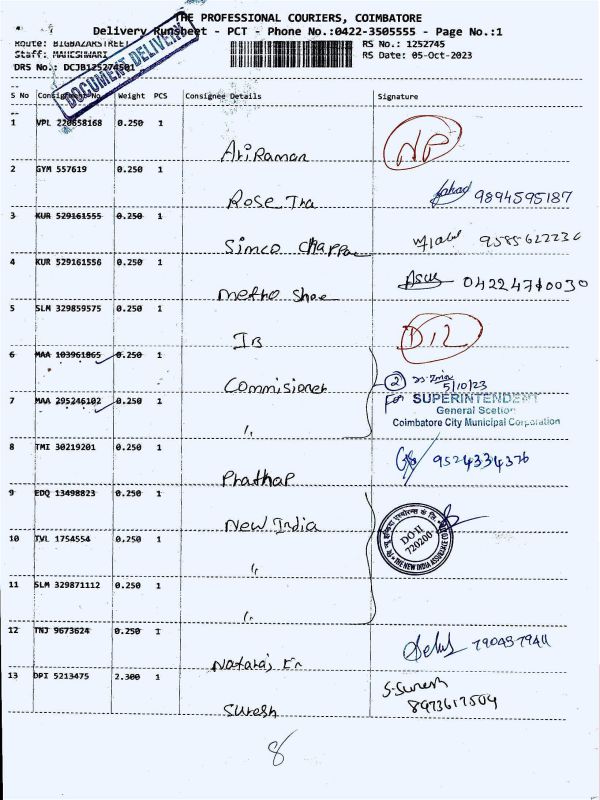 THE PROFESSIONAL COURIERS, COIMBATORE
Delivery Runsheet - PCT - Phone No.:0422-3505555 - Page No.:1
Route: BIGBAZARSTREET RS No.: 1252745
Staff: MAHESHWARI RS Date: 05-Oct-2023
DRS No.: DCJB125274501
DOCUMENT DELIVERY
S No Consignment No. Weight PCS Consignee Details Signature
1 VPL 220658168 0.250 1
Ariraman NP
2 GYM 557619 0.250 1
Rose Tra 9894595187
3 KUR 529161555 0.250 1
Simco Chappa
4 KUR 529161556 0.250 1
metho Shoe
5 SLM 329859575 0.250 1
IB D/L
6 MAA 103961865 0.250 1
Commisioner 2 5/10/23
7 MAA 295246102 0.250 1
For SUPERINTENDENT
General Scetion
Coimbatore City Municipal Corporation
"
8 TMI 30219201 0.250 1
Prathap 9524334376
9 EDQ 13498823 0.250 1
New India
DO II
720200
THE NEW INDIA ASSURANCE
10 TVL 1754554 0.250 1
"
11 SLM 329871112 0.250 1
"
12 TNJ 9673624 0.250 1
Nataraj
13 DPI 5213475 2.300 1
Suresh S.Suresh
8973617504
8